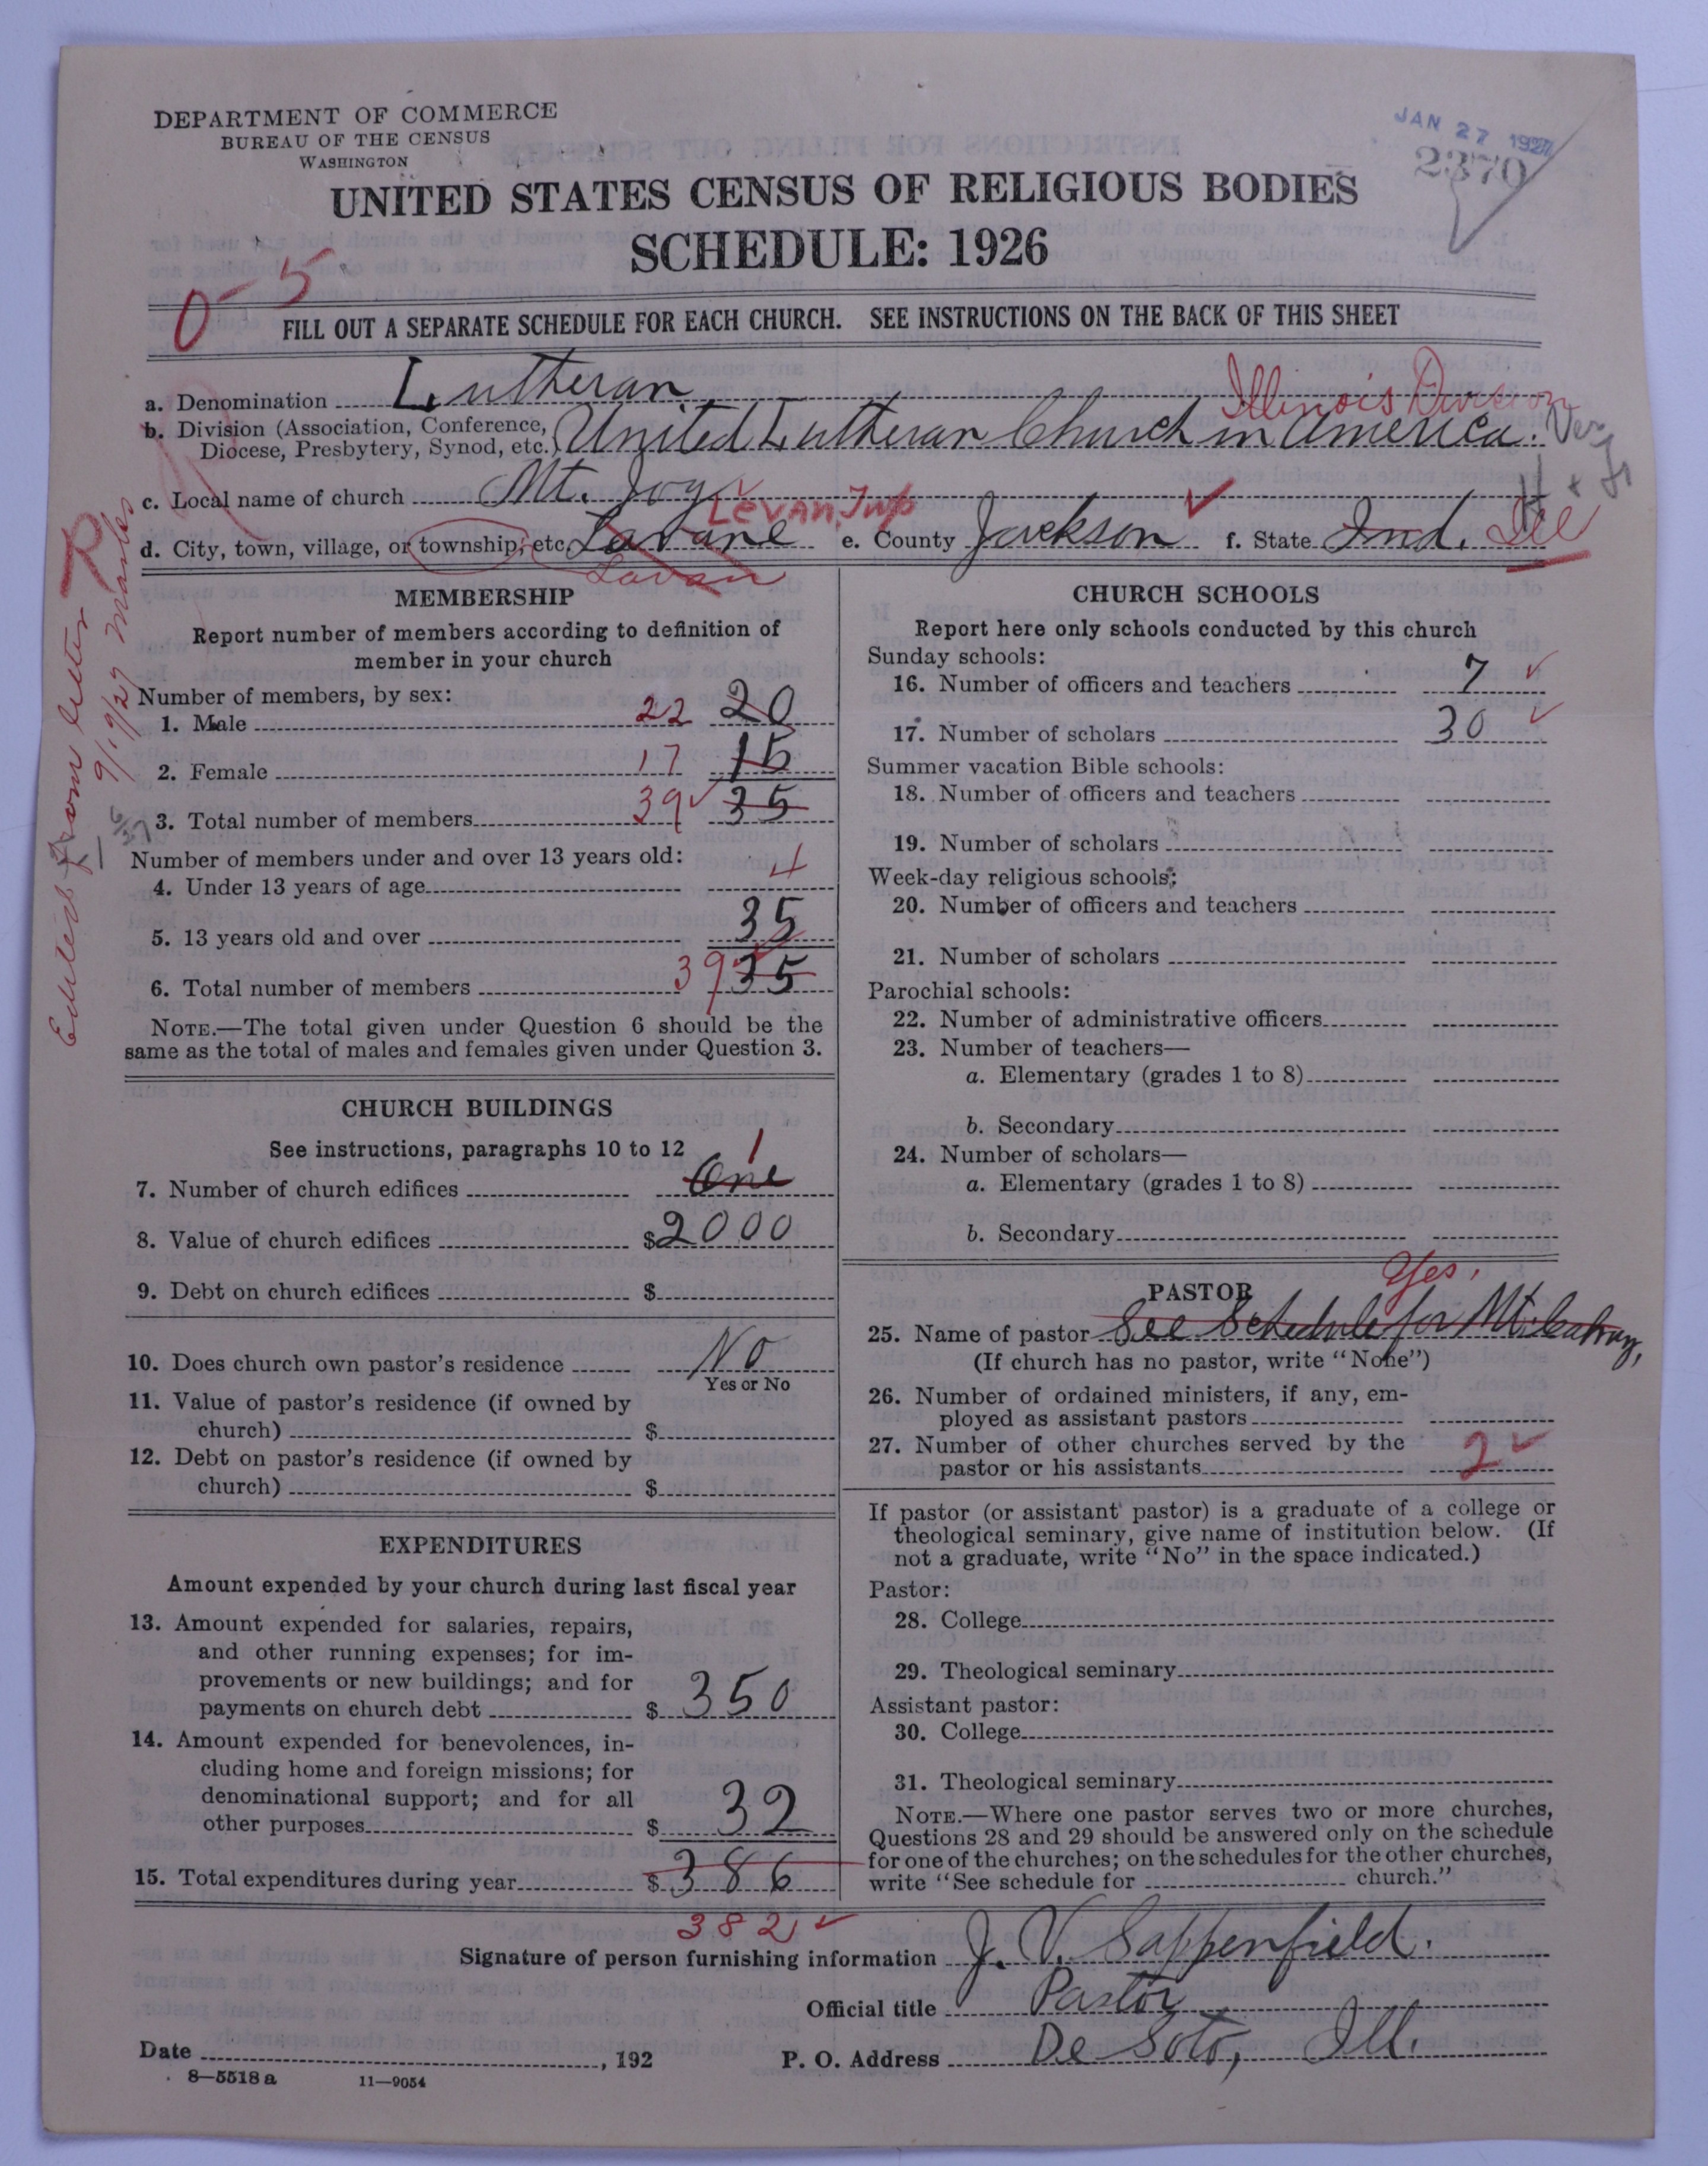 DEPARTMENT OF COMMERCE
BUREAU OF THE CENSUS
WASHINGTON
JAN 27 1927
2370
UNITED STATES CENSUS OF RELIGIOUS BODIES
SCHEDULE: 1926
0-5
FILL OUT A SEPARATE SCHEDULE FOR EACH CHURCH. SEE INSTRUCTIONS ON THE BACK OF THIS SHEET
Illinois Division
a. Denomination Lutheran
b. Division (Association, Conference, Diocese, Presbytery, Synod, etc.) United Lutheran Church in America.
c. Local name of church Mt. Joy
Levan Twp
d. City, town, village, or township, etc. Lavane e. County Jackson f. State Ind. Ill
Lavan
Entered from letter
9/19/27
MEMBERSHIP
Report number of members according to definition of
member in your church
Number of members, by sex:
1. Male 22 20
2. Female 17 15
3. Total number of members 39 35
Number of members under and over 13 years old:
4. Under 13 years of age 4
5. 13 years old and over 35
6. Total number of members 39 35
NOTE.—The total given under Question 6 should be the
same as the total of males and females given under Question 3.
CHURCH BUILDINGS
See instructions, paragraphs 10 to 12
1
7. Number of church edifices One
8. Value of church edifices $2000
9. Debt on church edifices $
10. Does church own pastor's residence No
Yes or No
11. Value of pastor's residence (if owned by
church) $
12. Debt on pastor's residence (if owned by
church) $
EXPENDITURES
Amount expended by your church during last fiscal year
13. Amount expended for salaries, repairs,
and other running expenses; for im-
provements or new buildings; and for
payments on church debt $ 350
14. Amount expended for benevolences, in-
cluding home and foreign missions; for
denominational support; and for all
other purposes $ 32
15. Total expenditures during year $ 386
382
CHURCH SCHOOLS
Report here only schools conducted by this church
Sunday schools:
16. Number of officers and teachers 7
17. Number of scholars 30
Summer vacation Bible schools:
18. Number of officers and teachers
19. Number of scholars
Week-day religious schools:
20. Number of officers and teachers
21. Number of scholars
Parochial schools:
22. Number of administrative officers
23. Number of teachers—
a. Elementary (grades 1 to 8)
b. Secondary
24. Number of scholars—
a. Elementary (grades 1 to 8)
b. Secondary
Yes,
PASTOR
25. Name of pastor See Schedule for Mt. Calvary,
(If church has no pastor, write "None")
26. Number of ordained ministers, if any, em-
ployed as assistant pastors
27. Number of other churches served by the
pastor or his assistants 2
If pastor (or assistant pastor) is a graduate of a college or
theological seminary, give name of institution below. (If
not a graduate, write "No" in the space indicated.)
Pastor:
28. College
29. Theological seminary
Assistant pastor:
30. College
31. Theological seminary
NOTE.—Where one pastor serves two or more churches,
Questions 28 and 29 should be answered only on the schedule
for one of the churches; on the schedules for the other churches,
write "See schedule for church."
Signature of person furnishing information J. V. Sappenfield.
Official title Pastor
Date , 192 P. O. Address De Soto, Ill.
8—5518 a 11—9054